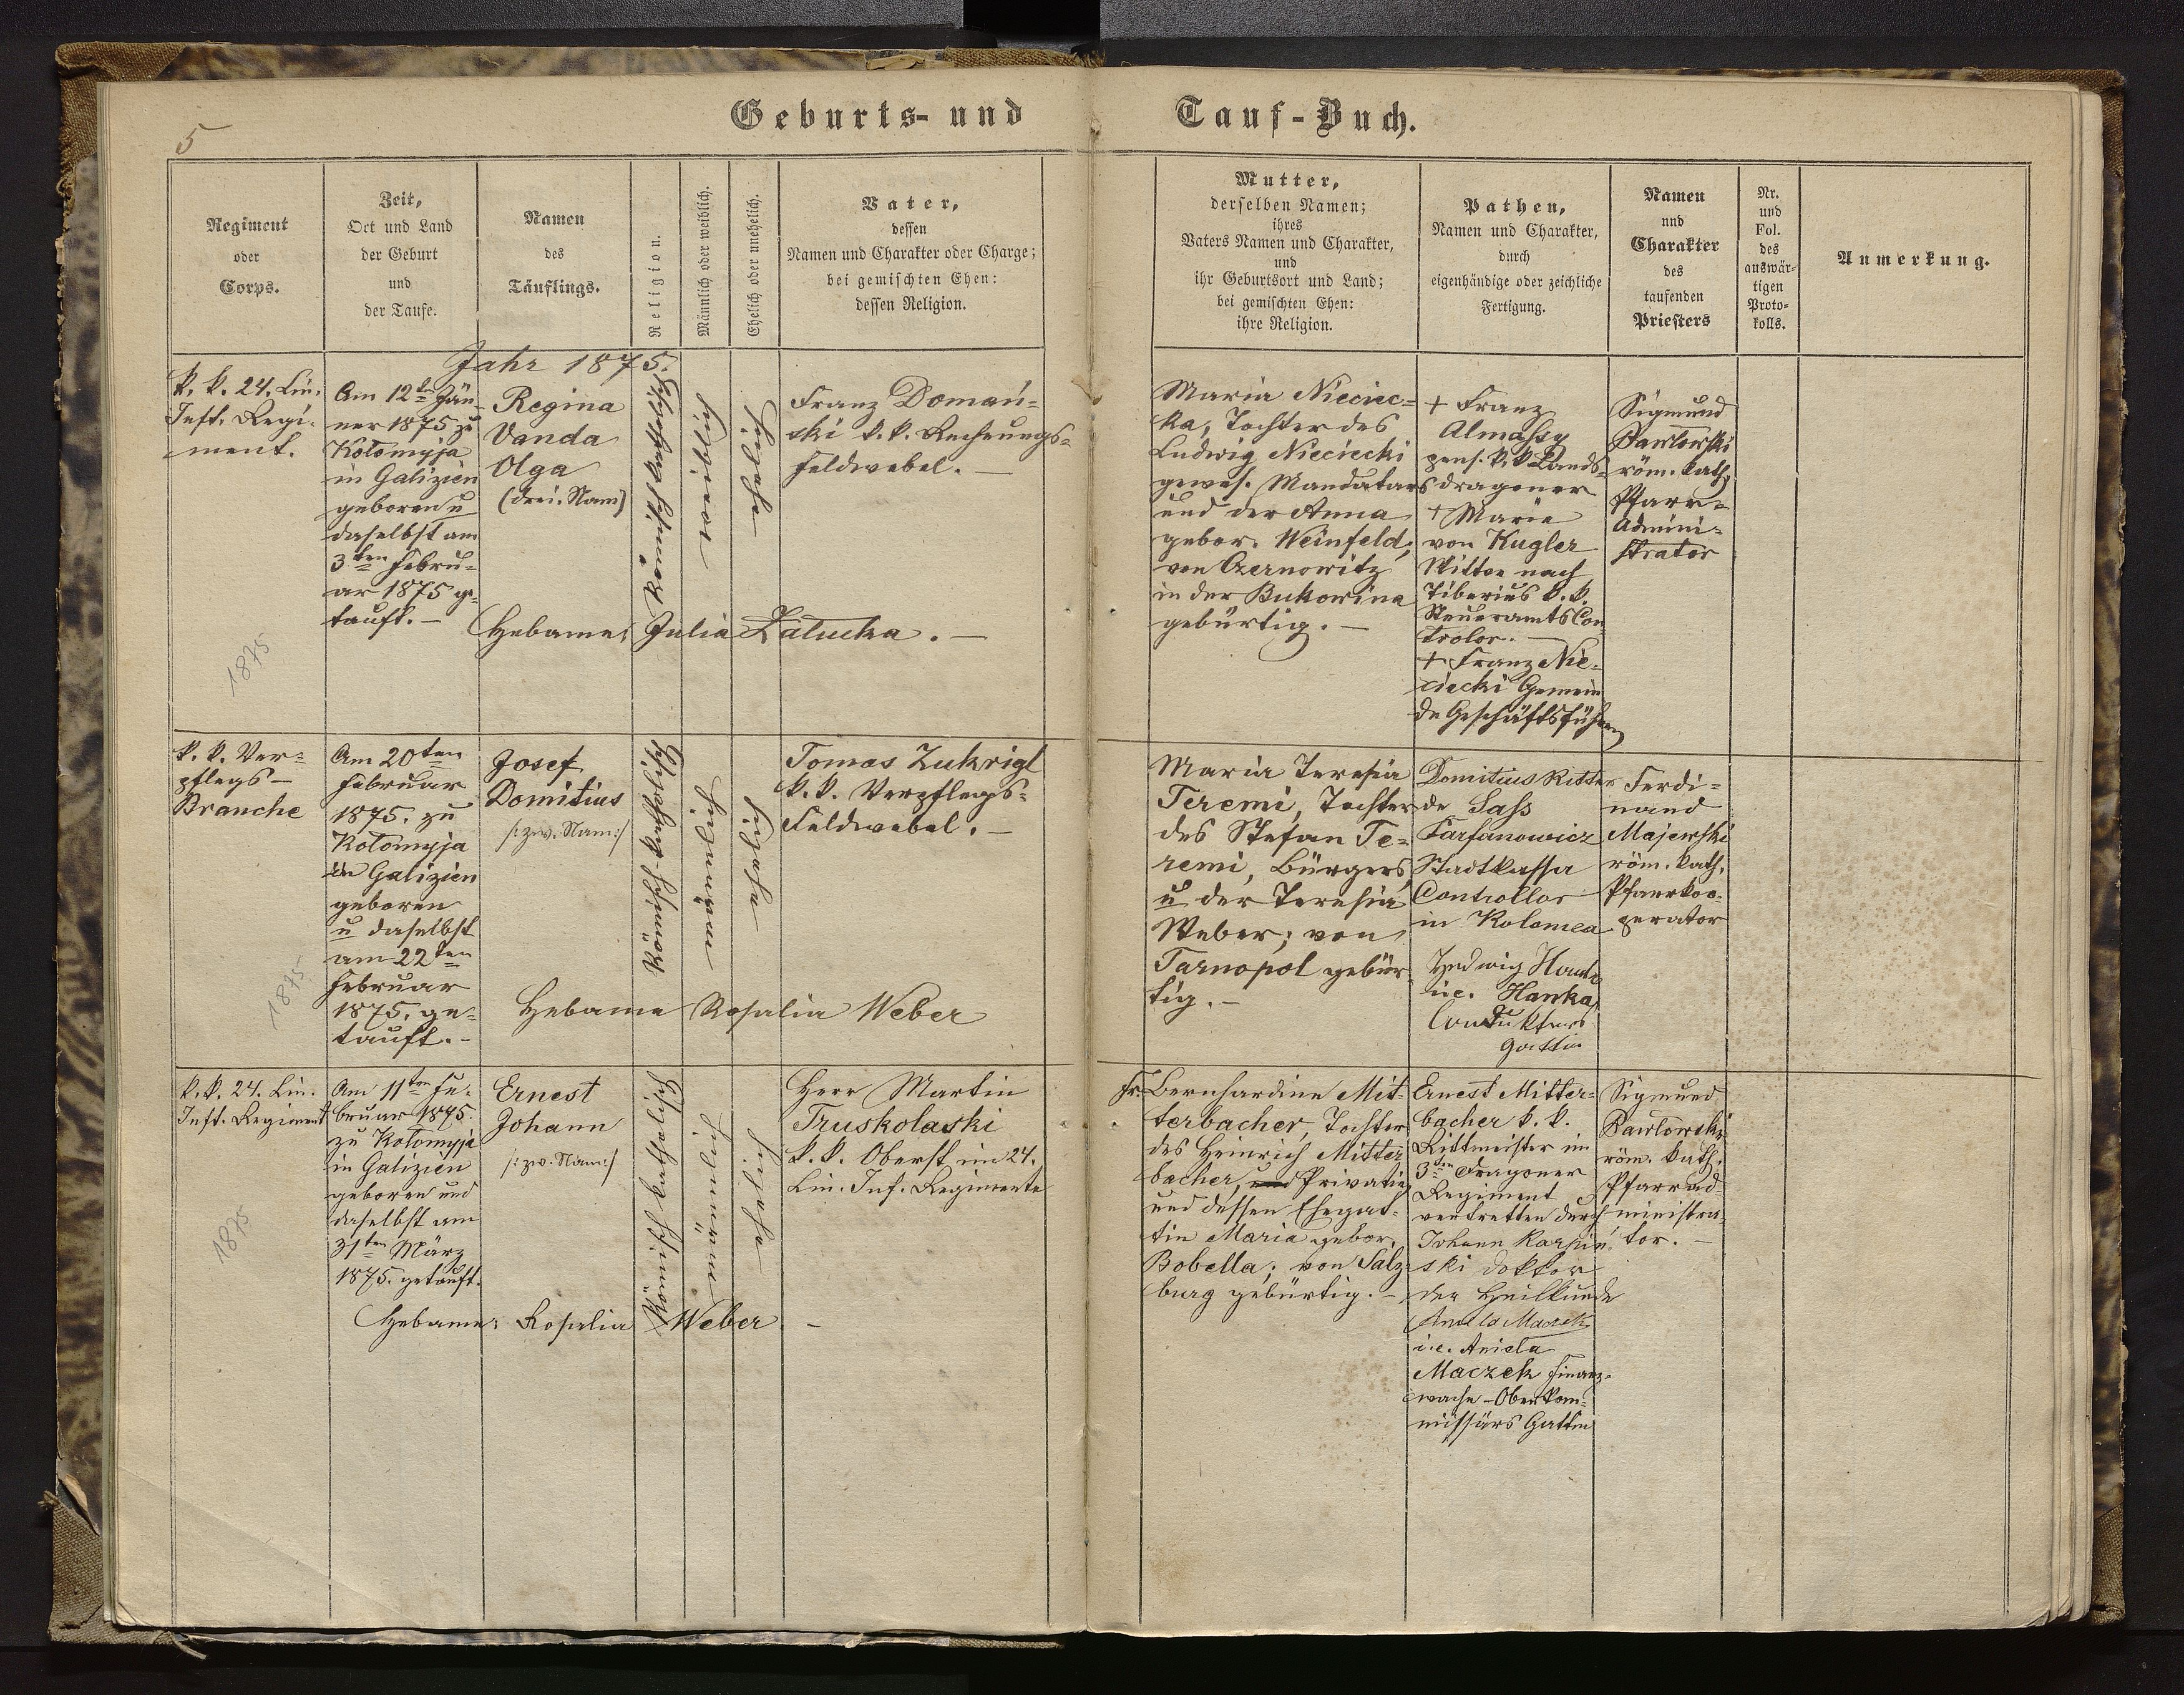 5
Geburts- und Tauf-Buch.
Regiment
oder
Corps.
Zeit,
Ort und Land
der Geburt
und
der Taufe.
Namen
des
Täuflings.
Religion.
Männlich oder weiblich.
Ehelich oder unehelich.
Vater,
dessen
Namen und Charakter oder Charge;
bei gemischten Ehen:
dessen Religion.
Mutter,
derselben Namen;
ihres
Vaters Namen und Charakter,
und
ihr Geburtsort und Land;
bei gemischten Ehen:
ihre Religion.
Pathen,
Namen und Charakter,
durch
eigenhändige oder zeichliche
Fertigung.
Namen
und
Charakter
des
taufenden
Priesters
Nr.
und
Fol.
des
auswär-
tigen
Proto-
kolls.
Anmerkung.
Jahr 1875.
k. k. 24. Lin.
Inft. Regi-
ment.
1875
Am 12t Jän-
ner 1875 zu
Kołomyja
in Galizien
geboren u
daselbst am
3ten Febru-
ar 1875 ge-
tauft. –
Regina
Vanda
Olga
(drei. Nam)
Römisch katholisch
weiblich
Ehelich
Franz Domań-
ski k. k. Rechnungs-
feldwebel. –
Hebame: Julia Załucka. –
Maria Nieciec-
ka, Tochter des
Ludwig Nieciecki
gewes. Mandatars
und der Anna
gebor. Weinfeld;
von Czernowitz
in der Bukowina
gebürtig. –
+ Franz
Almássy
pens. k. k. Lands-
dragoner
+ Marie
von Kugler
Wittwe nach
Tiberius k. k.
Steueramts Con
trolor. –
+ Franz Nie-
ciecki Gemein
de Geschäftsführer
Sigmund
Pawłowski
röm. kath.
Pfarr-
Admini-
strator
k. k. Ver-
pflegs-
Branche
1875
Am 20ten
Februar
1875. zu
Kołomyja
in Galizien
geboren
u daselbst
am 22ten
Februar
1875. ge-
tauft. –
Josef
Domitius
/: zw. Nam :/
Römisch-katholisch
männlich
Ehelich
Tomas Zukrigl
k. k. Verpflegs-
Feldwebel. –
Hebame Rosalia Weber
Maria Teresia
Teremi, Tochter
des Stefan Te-
remi, Bürgers
u der Teresia
Weber; von
Tarnopol gebür
tig. –
Domitius Ritter
de Sass
Tarfanowicz
Stadtkassa
Controllor
in Kolomea
Hedwig Hanka
i.e. Hanka
Condukteurs
gattin
Ferdi-
nand
Majewski
röm. kath.
Pfarrkoo-
perator
k. k. 24. Lin.
Inft. Regiment
1875
Am 11ten Fe-
bruar 1875.
zu Kołomyja
in Galizien
geboren und
daselbst am
31ten März
1875. getauft.
Ernest
Johann
/: zw. Nam :/
Römisch katholisch
männlich
Ehelich
Herr Martin
Truskolaski
k. k. Oberst im 24.
Lin. Inf. Regimente
Hebame: Rosalia Weber –
Fr. Bernhardine Mit-
terbacher, Tochter
des Heinrich Mitter
bacher, Privatie
und dessen Ehegat-
tin Maria gebor.
Bobella; von Salz-
burg gebürtig. –
Ernest Mitter-
bacher k. k.
Rittmeister im
3ten Dragoner
Regiment
vertretten durch
Johann Karpiń-
ski doktor
der Heilkunde
Aniela Maczek
i.e. Aniela
Maczek Finanz-
wache-Oberkom-
missärs Gattin
Sigmund
Pawłowski
röm. kath.
Pfarrad-
ministra-
tor. –